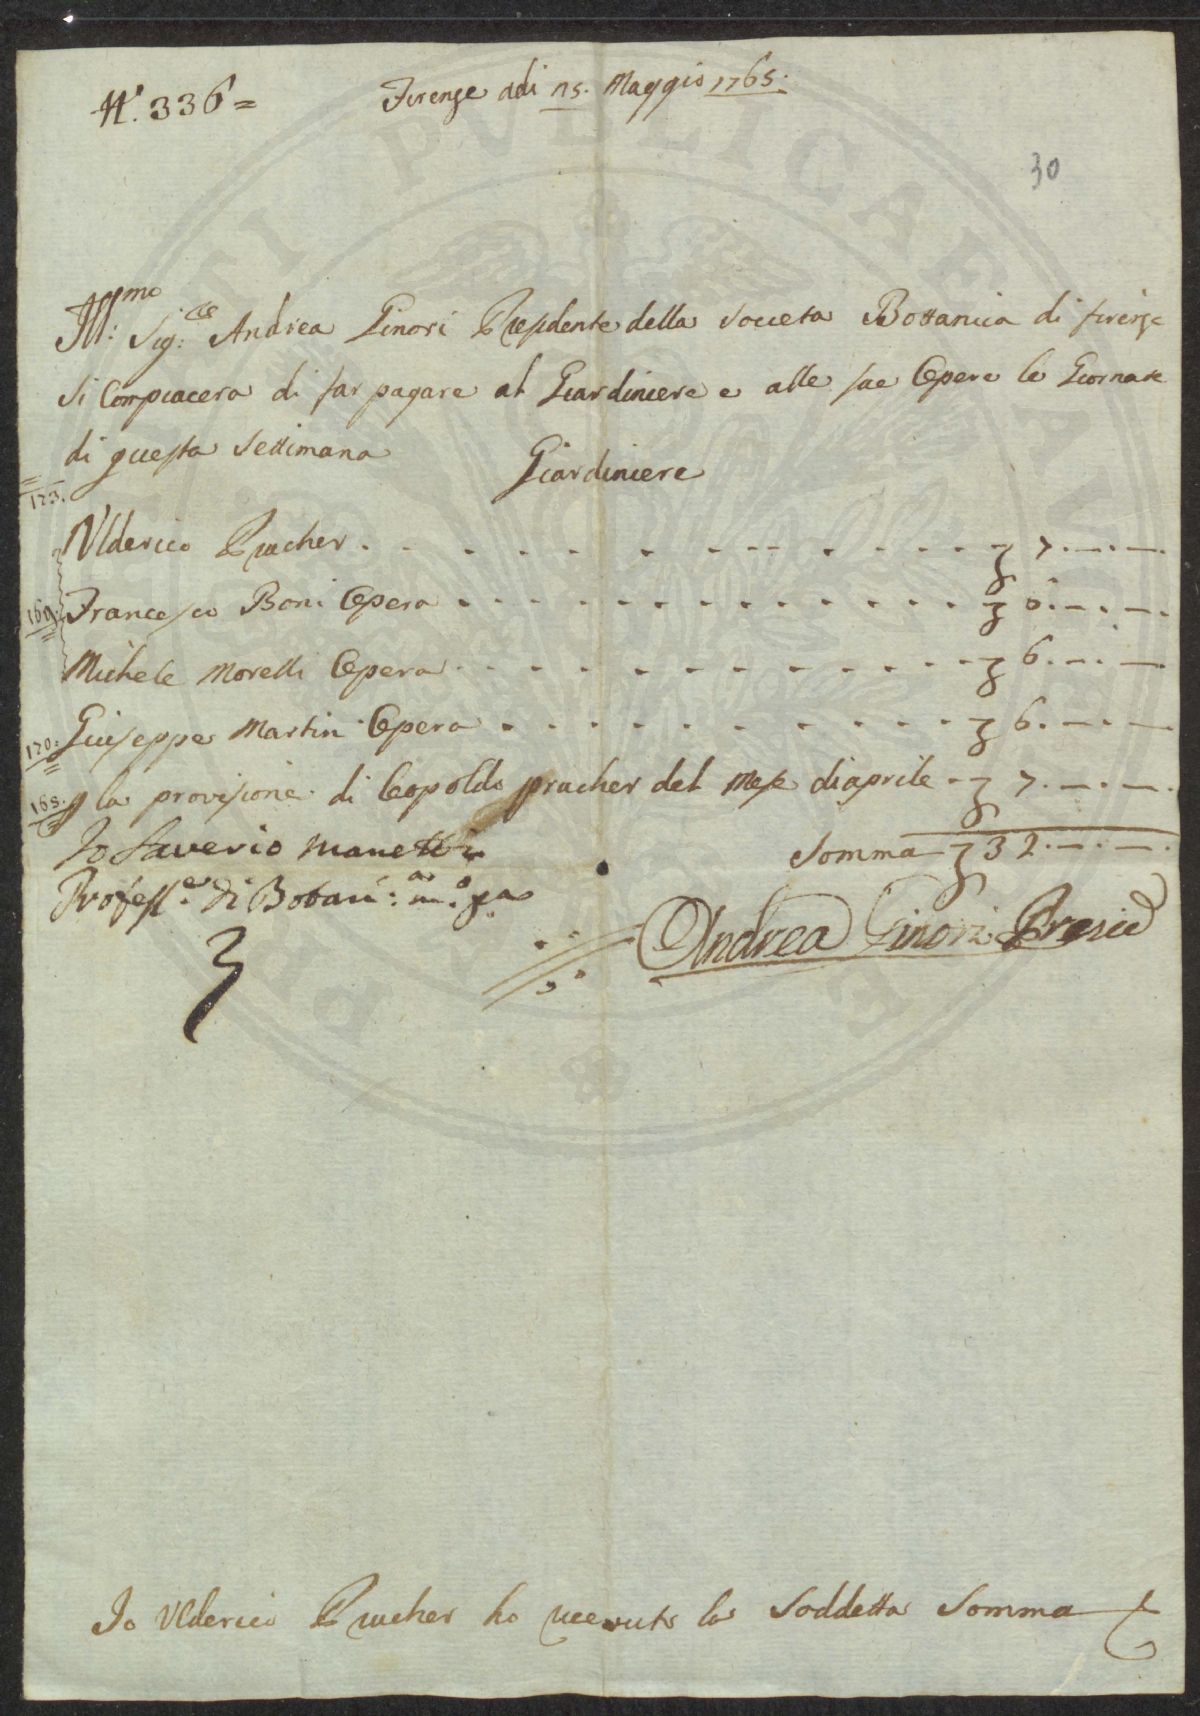 N.° 336 =
Firenze adi 25. Maggio 1765.
30
Ill:mo Sig:re Andrea Ginori Presidente della Società Bottanica di firenze
si Compiacera di far pagare al Giardiniere e alle sue Opere le Giornate
di questa Settimana
Giardiniere
173.
Ulderico Prucher . - - - - - - - - - - - - - - 7.—.—.
169.
Francesco Boni Opera - - - - - - - - - - - - - - 6.—.—.
Michele Morelli Opera - - - - - - - - - - - - - 6.—.—.
170.
Giuseppe Martini Opera - - - - - - - - - - - - 6.—.—.
165.
p la provisione di Leopoldo prucher del Mese di aprile - 7.—.—.
Somma 32.—.—.
Io Saverio Manetti
Profess.e di Botan:ca m.o pa
Andrea Ginori Preside
Io Ulderico Prucher ho riceuuto la Soddetta Somma